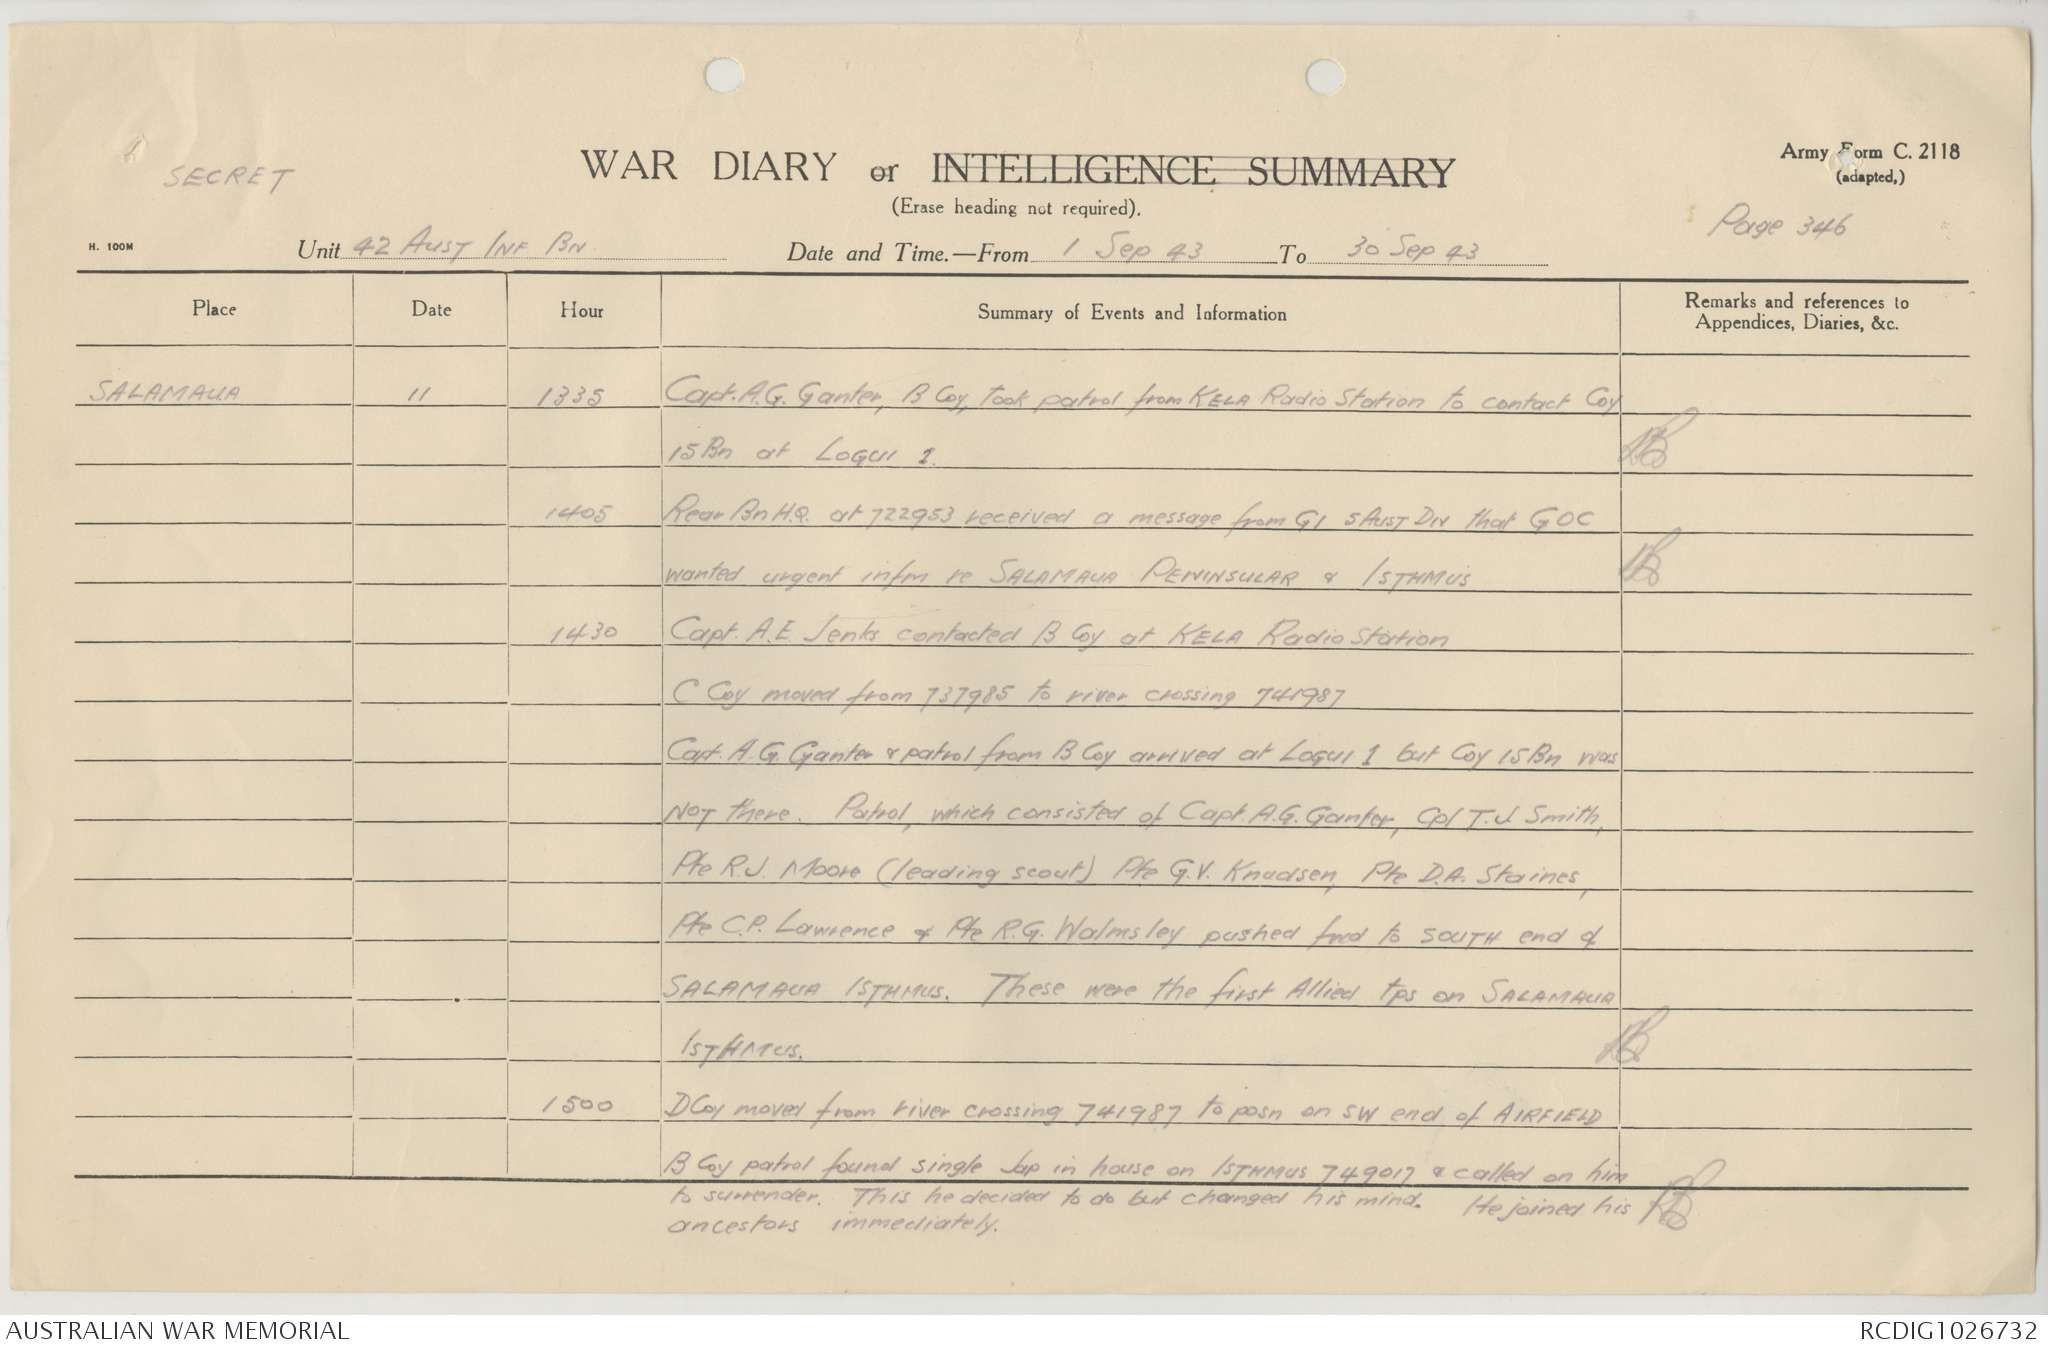 SECRET
WAR DIARY or INTELLIGENCE SUMMARY
(Erase heading not required).
Army Form C. 2118
(adapted,)
Page 346
H. 100M
Unit 42 AUST INF BN Date and Time.—From 1 Sep 43 To 30 Sep 43
Place Date Hour Summary of Events and Information Remarks and references to
Appendices, Diaries, &c.
SALAMAUA 11 1335 Capt. A.G. Ganter, B Coy, took patrol from KELA Radio Station to contact Coy
15 Bn at LOGUI 1.
1405 Rear Bn H.Q. at 722953 received a message from G1 5 AUST DIV that GOC
wanted urgent infm re SALAMAUA PENINSULAR & ISTHMUS
1430 Capt. A.E. Jenks contacted B Coy at KELA Radio Station
C Coy moved from 737985 to river crossing 741987
Capt. A.G. Ganter & patrol from B Coy arrived at LOGUI 1 but Coy 15 Bn was
NOT there. Patrol, which consisted of Capt. A.G. Ganter, Cpl T.J. Smith,
Pte R.J. Moore (leading scout) Pte G.V. Knudsen, Pte D.A. Staines,
Pte C.P. Lawrence & Pte R.G. Walmsley pushed fwd to SOUTH end of
SALAMAUA ISTHMUS. These were the first Allied tps on SALAMAUA
ISTHMUS.
1500 D Coy moved from river crossing 741987 to posn on SW end of AIRFIELD
B Coy patrol found single Jap in house on ISTHMUS 749017 & called on him
to surrender. This he decided to do but changed his mind. He joined his
ancestors immediately.
AUSTRALIAN WAR MEMORIAL RCDIG1026732